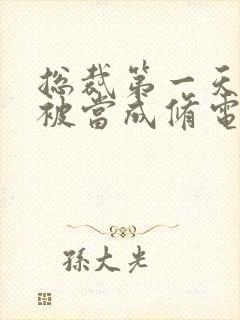 总裁第一天
被當成修電
孫大光